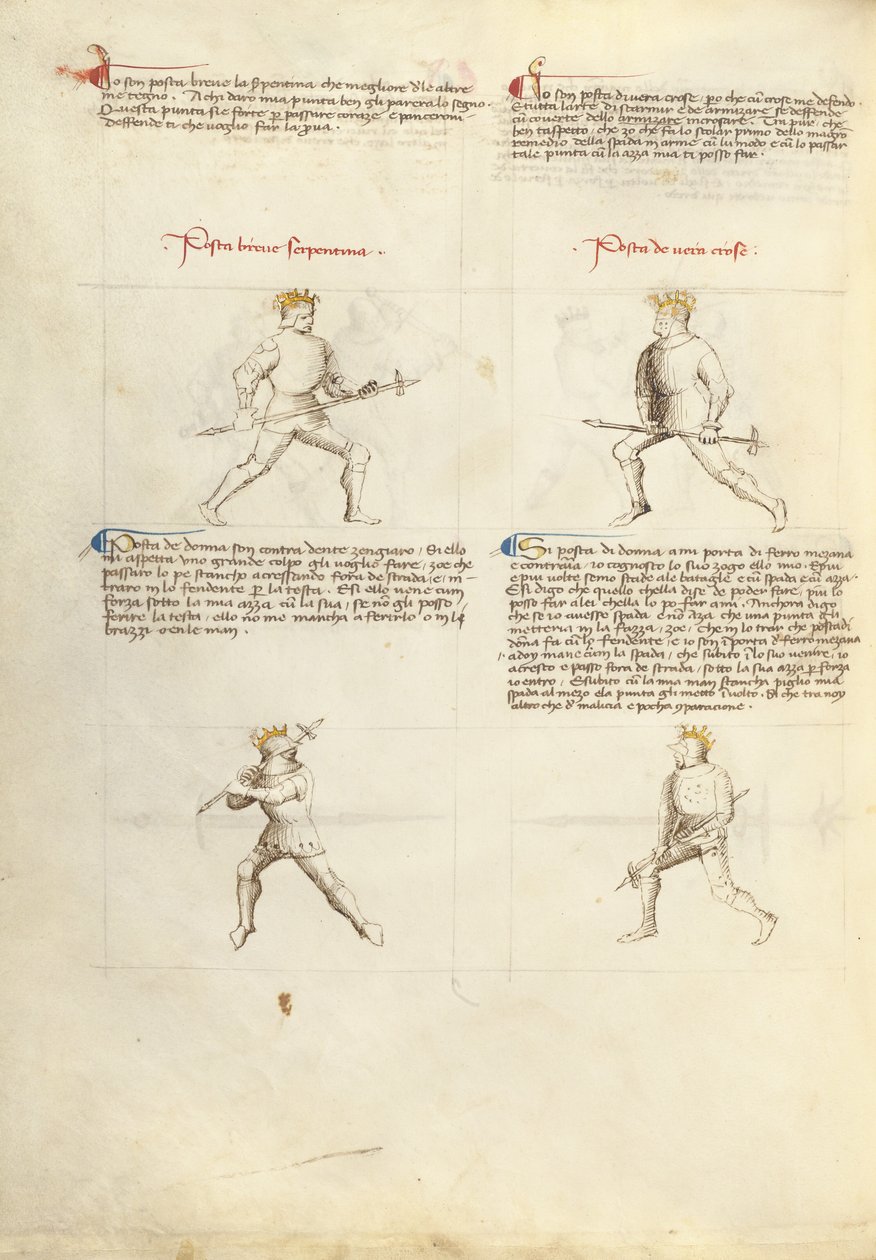 Io son posta breve la serpentina che megliore d'le altre
me tegno. A chi daro mia punta ben gli parera lo segno.
Questa punta si e forte p passare coraze e panceroni
deffende ti che voglio far la pva.
Posta breve serpentina
Io son posta di vera crose, pero che cū crose me defendo.
E tutta larte di scarmir e de armizare se deffende
cū coverte dello armizare incrosare. Tra pur, che
ben taspetto, che zo che fa lo scolar primo dello magro
remedio della spada in arme cū lu modo e cū lo passar
tale punta cū la azza mia ti posso far.
Posta de vera crose
Posta de donna son contra dente zengiaro, Si ello
mi aspetta uno grande colpo gli voglio fare, zoe che
passaro lo pe stancho acressando fora de strada, e in
traro in lo fendente p la testa. E si ello vene cum
forza sotto la mia azza cū la sua, se nō gli posso
ferire la testa, ello nō me mancha a ferirlo o in li
brazzi o en le man.
Si posta di donna a mi porta di ferro mezana
e contraria, io cognosco lo suo zogo ello mio. E piu
e piu volte semo stade ale bataglie e cū spada e cū azza.
E si digo che quello chella dise de poder fare, piu lo
posso far a lei chella lo po far a mi. Anchora digo
che se io avesse spada e nō azza che una punta gli
metteria in la fazza, zoe, che in lo trar che posta di
dōna fa cū lo fendente, e io son ī porta d' ferro mezana
a doy mane cum la spada, che subito ī lo suo venire, io
acresco e passo fora de strada, sotto la sua azza p forza
io entro, E subito cū la mia man stancha piglio mia
spada al mezo e la punta gli metto ī volto. Si che tra noy
altro che d' malicia e pocha cparacione.